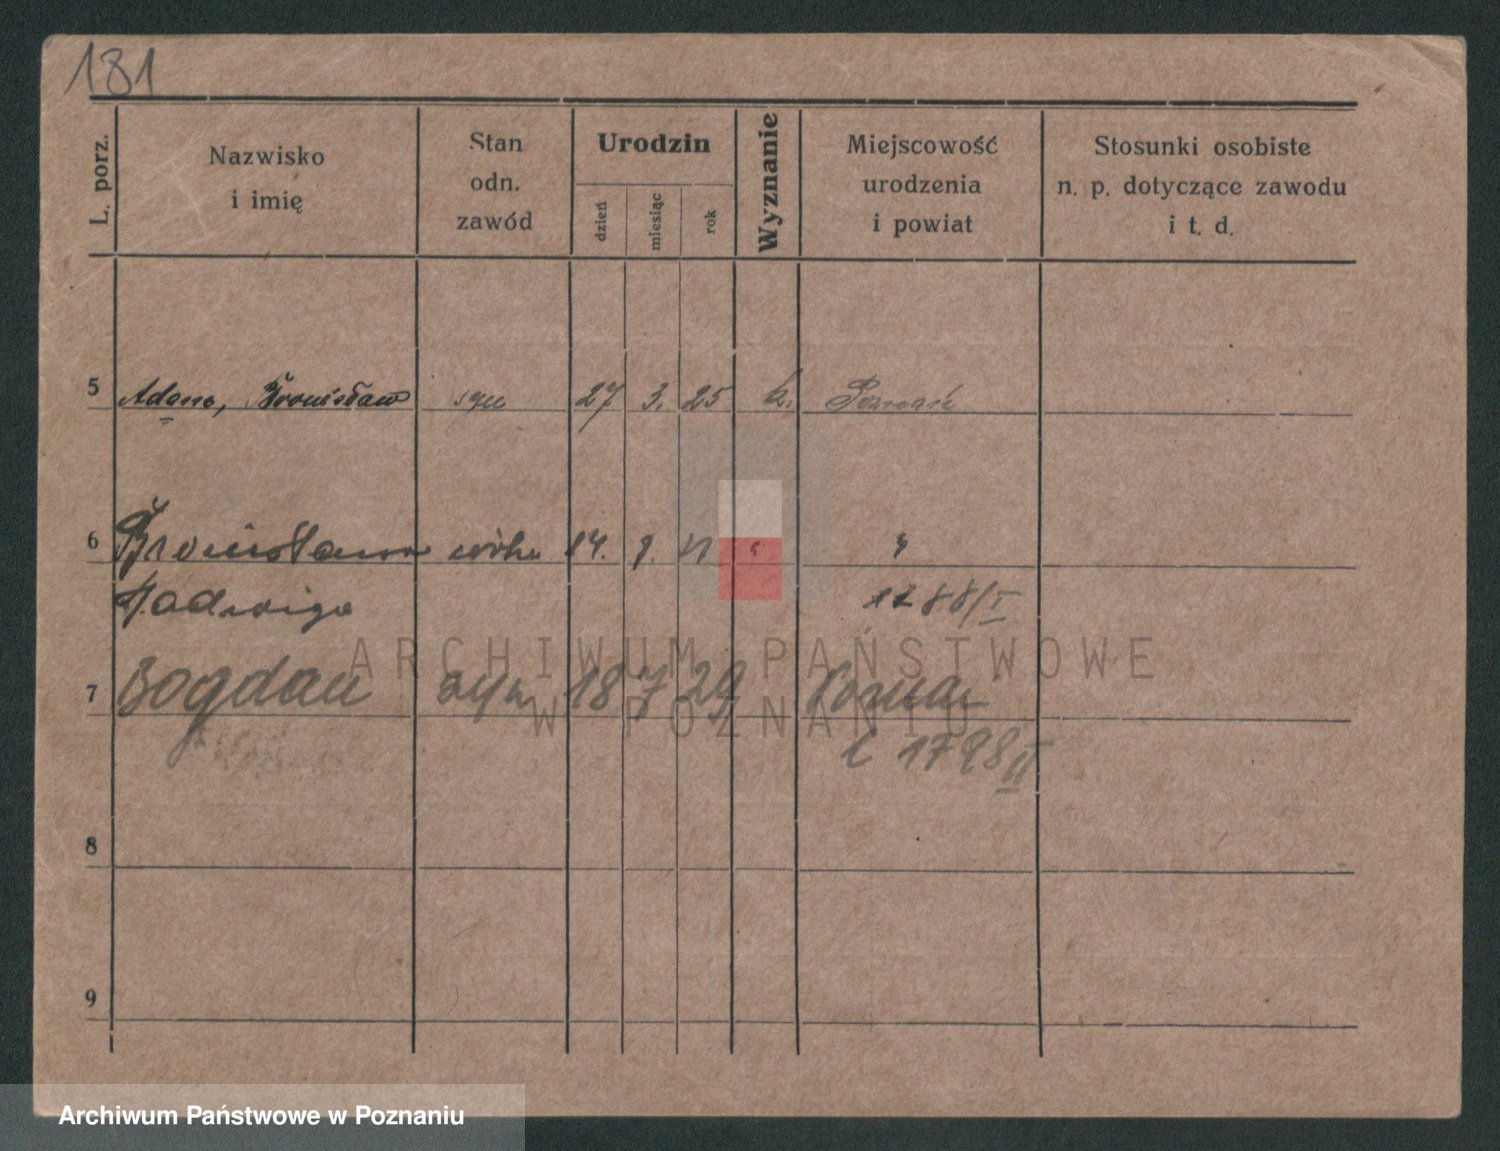 181
L. porz.
Nazwisko
i imię
Stan
odn.
zawód
Urodzin
dzień
miesiąc
rok
Wyznanie
Miejscowość
urodzenia
i powiat
Stosunki osobiste
n. p. dotyczące zawodu
i t. d.
5 Adam, Bronisław syn 27 3. 25 k. Poznań
6 Bronisława córka 14. 9. "
Jadwiga 1288/I
ARCHIWUM PAŃSTWOWE
7 Bogdan syn 18 7 29 Poznań
W POZNANIU
1798 II
8
9
Archiwum Państwowe w Poznaniu